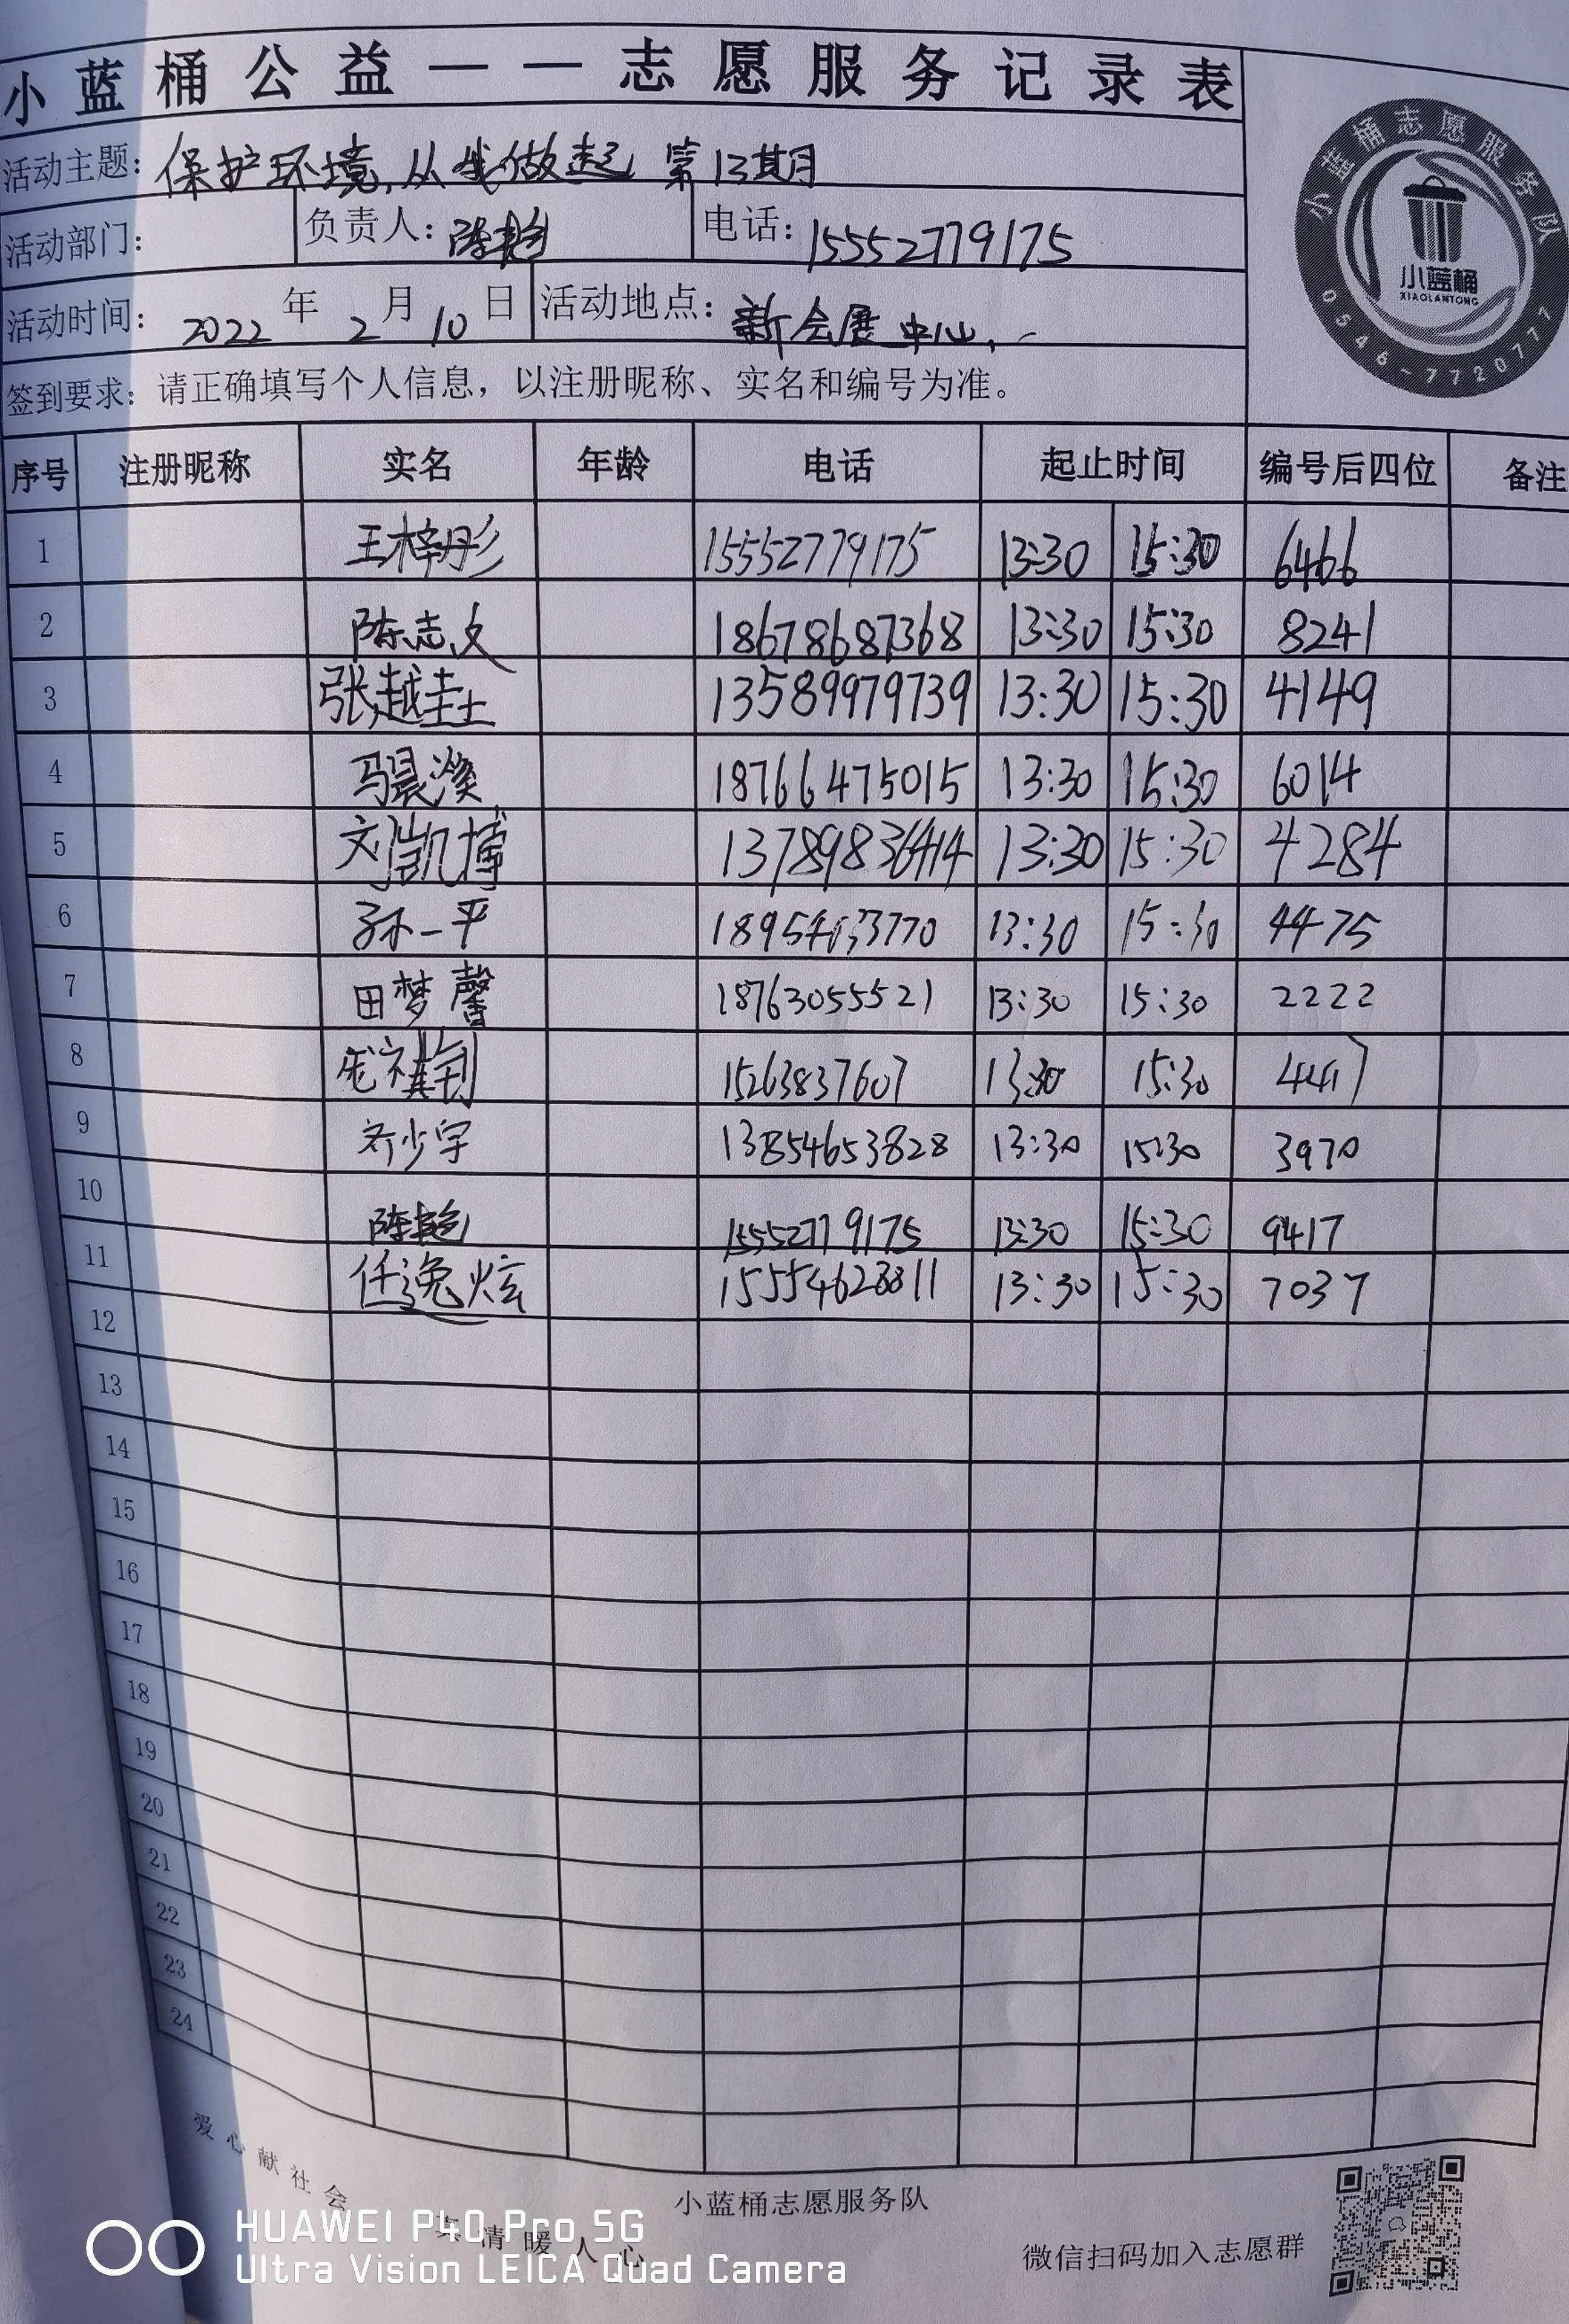 小蓝桶公益——志愿服务记录表
小蓝桶志愿服务队
小蓝桶
XIAOLANTONG
0546-7720777
活动主题：保护环境，从我做起 第13期
活动部门： 负责人：陈艳 电话：15552779175
活动时间：2022年2月10日 活动地点：新会展中心，
签到要求：请正确填写个人信息，以注册昵称、实名和编号为准。
序号 注册昵称 实名 年龄 电话 起止时间 编号后四位 备注
1 王梓彤 15552779175 13:30 15:30 6466
2 陈志文 18678687368 13:30 15:30 8241
3 张越 13589979739 13:30 15:30 4149
4 马晨 18766475015 13:30 15:30 6014
5 刘凯博 13789836414 13:30 15:30 4284
6 孙一平 13:30 15:30 4475
7 田梦馨 18763055521 13:30 15:30 2222
8 15263837607 13:30 15:30 4417
9 齐少宇 13854653828 13:30 15:30 3970
10 陈艳 15552779175 13:30 15:30 9417
11 任逸炫 15554628811 13:30 15:30 7037
12
13
14
15
16
17
18
19
20
21
22
23
24
爱心献社会 真情暖人心
小蓝桶志愿服务队
微信扫码加入志愿群
HUAWEI P40 Pro 5G
Ultra Vision LEICA Quad Camera